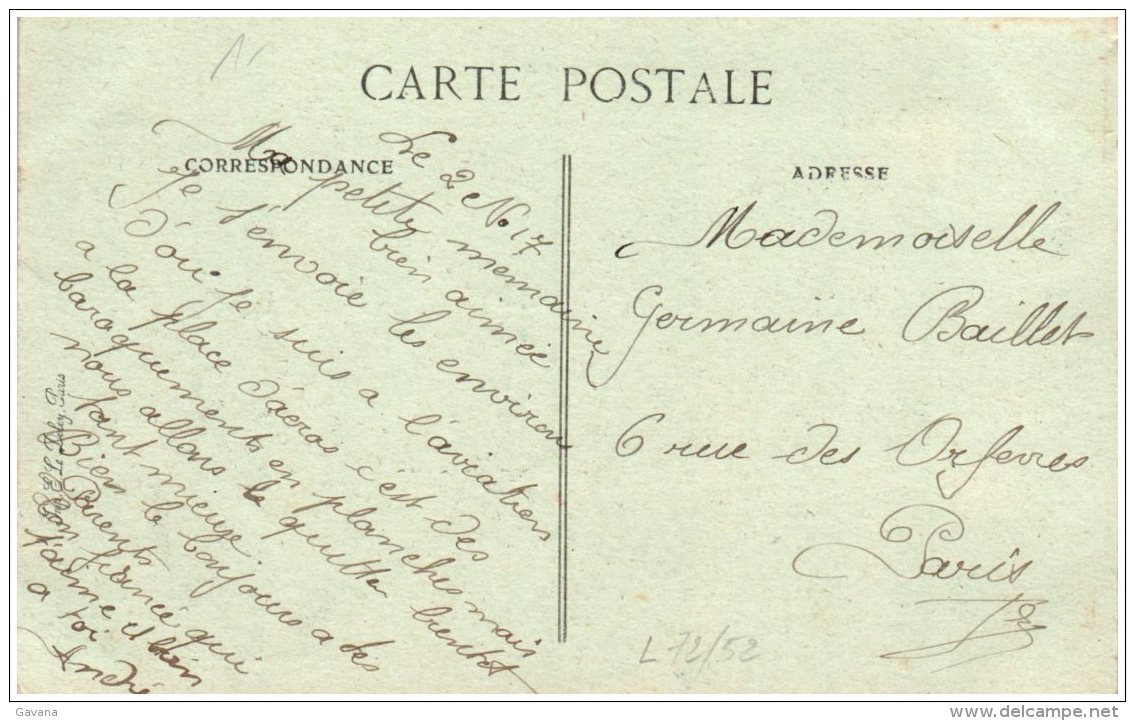 CARTE POSTALE
CORRESPONDANCE
ADRESSE
Le 2 No 17
Ma petite memaine
bien aimée
Je t'envoie les environ
d'ou je suis a l'aviation
a la place d'aeros c'est des
baroquements en planches mais
nous allons le quitter bientot
tant mieux
Bien le bonjours a tes
Parents
Ton fiancé qui
t'aime et bien
a toi
André
Mademoiselle
Germaine Baillet
6 rue des Orfevres
Paris
L 72/52
Imp. E. Le Deley, Paris
Gavana
delcampe.net